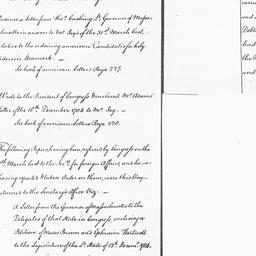 Received a letter from Tho.s Cushing Lt. Governor of Massa-
chusetts in answer to Mr. Jay's of the 31st March last,
relative to the ordaining american Candidates for holy
Orders in Denmark. —
See book of american Letters Page 227.
Wrote to the President of Congress & enclosed Mr. Adams'
Letter of the 15th December 1784 to Mr. Jay. —
See book of american Letters Page 230.
The following Papers, having been referred by Congress on the
March last to the Sec.y for foreign Affairs, and he
having reported & taken Order on them, were this Day
returned to the Secretary's Office Viz:
A Letter from the Governor of Massachusetts to the
Delegates of that State in Congress, enclosing a
Petition of Moses Brown and Ephraim
to the Legislature of the sd. State of 13th Novem.r 1784.
carri
and
Debts
had
the
and